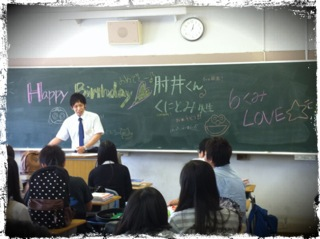 Happy Birthday
肘井くん
くにとみ先生
6くみ
LOVE